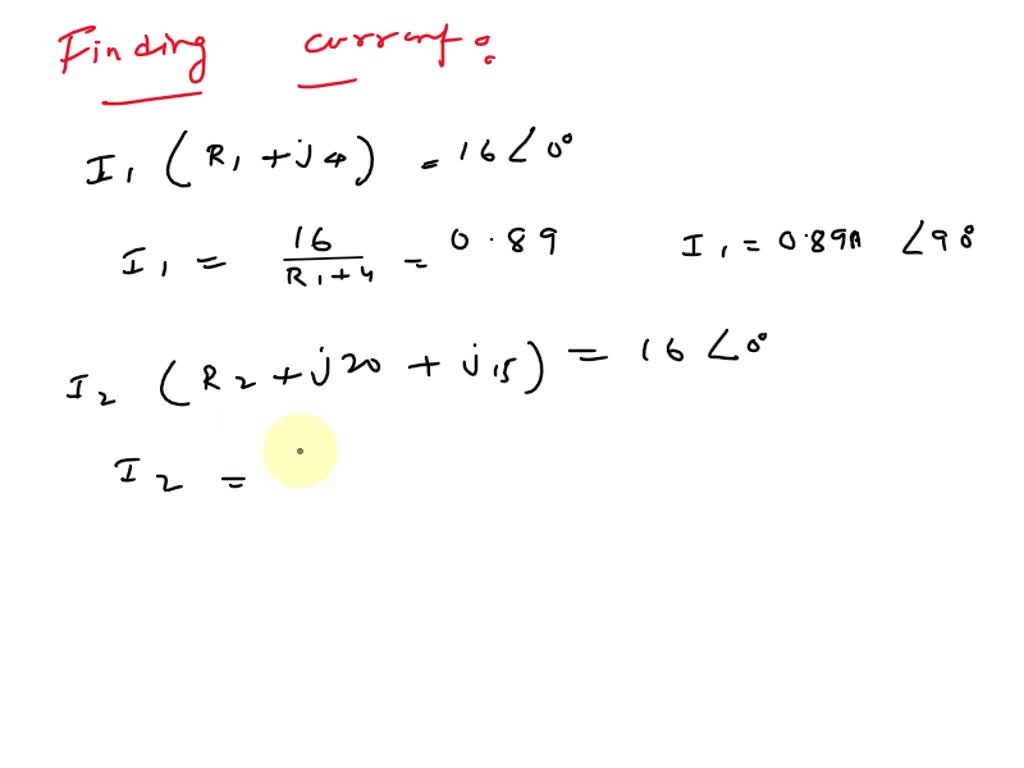 Finding current:
I₁ (R₁ + j4) = 16∠0°
I₁ = 16/(R₁+4) = 0.89 I₁ = 0.89A ∠90°
I₂ (R₂ + j20 + j15) = 16∠0°
I₂ =